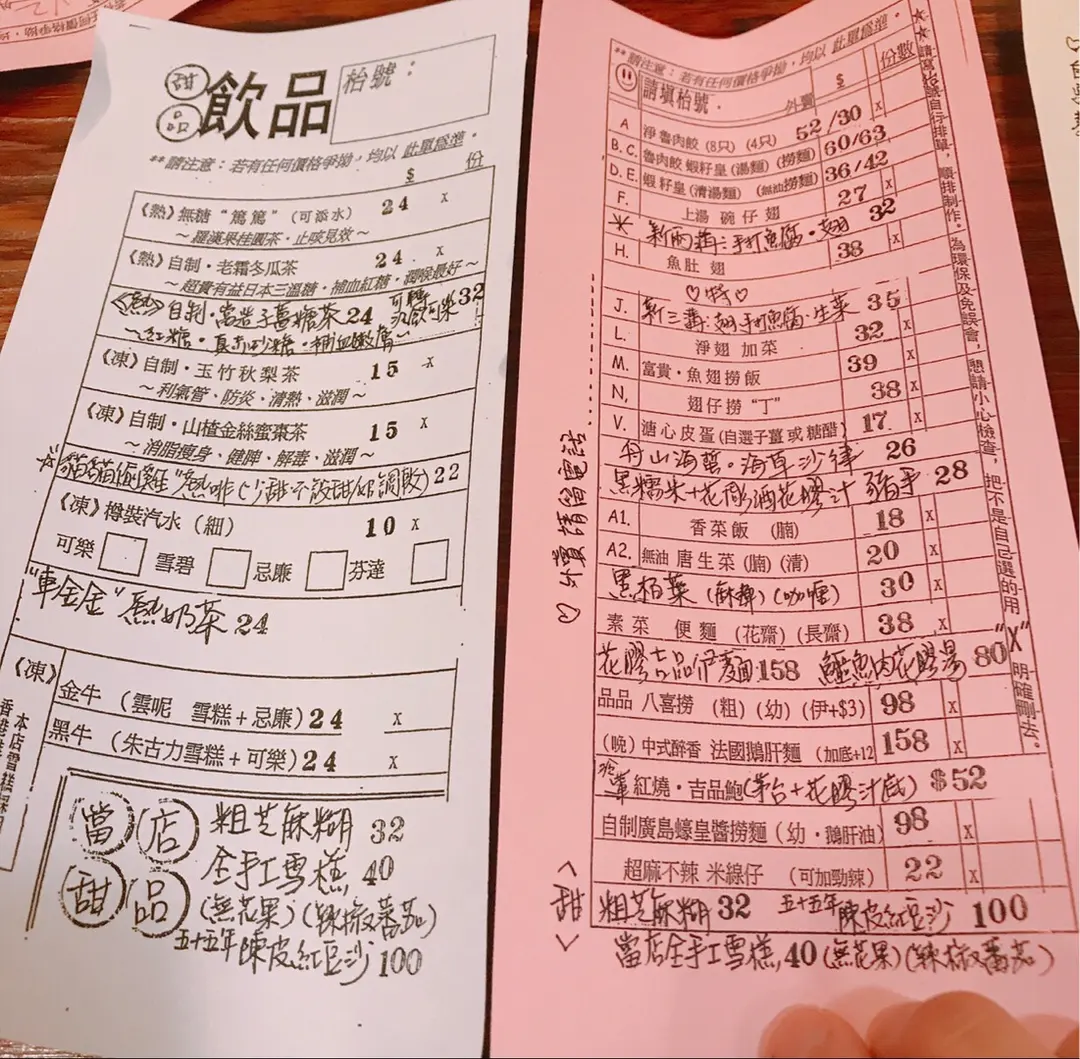 甜品 飲品 枱號：
**請注意：若有任何價格爭拗，均以 此單爲準。
$ 份
《熱》無糖“篤篤”(可添水) 24 x
～羅漢果桂圓茶・止咳見效～
《熱》自制・老霜冬瓜茶 24 x
～超貴有益日本三溫糖・補血紅糖・潤喉最好～
《熱》自制・ 薑糖茶 24 可轉 可樂 32
《凍》自制・玉竹秋梨茶 15 x
～利氣管、防炎、清熱、滋潤～
《凍》自制・山楂金絲蜜棗茶 15 x
～消脂瘦身、健脾、解毒、滋潤～
22
《凍》樽裝汽水（細） 10 x
可樂 雪碧 忌廉 芬達
“車金金”熱奶茶 24
《凍》
金牛（雲呢 雪糕+忌廉）24 x
黑牛（朱古力雪糕+可樂）24 x
當店甜品
粗芝麻糊 32
全手工雪糕 40
(無花果)(辣椒蕃茄)
五十五年陳皮紅豆沙 100
**請注意：若有任何價格爭拗，均以 此單爲準。
請填枱號. 外賣 $ 份數
A 淨魯肉餃 (8只) (4只) 52/30 x
B. C. 魯肉餃 蝦籽皇 (湯麵) (撈麵) 60/63
D. E. 蝦籽皇 (清湯麵) (無油撈麵) 36/42
F. 上湯 碗仔翅 27 x
手打魚腐・翅 32
H. 魚肚 翅 38 x
J. 手打魚腐・生菜 35
L. 淨翅 加菜 32 x
M. 富貴・魚翅撈飯 39 x
N, 翅仔撈“丁” 38 x
V. 溏心皮蛋 (自選子薑或糖醋) 17 x
舟山海蜇・海草沙律 26
黑糯米+花彫酒花膠汁 豬手 28
A1. 香菜飯 (腩) 18 x
A2. 無油 唐生菜 (腩) (清) 20 x
黑柏葉 (麻辣) (咖喱) 30 x
素菜 便麵 (花齋) (長齋) 38 x
花膠吉品伊麵 158 鱷魚肉花膠湯 80
品品 八喜撈 (粗) (幼) (伊+$3) 98 x
(晚) 中式醉香 法國鵝肝麵 (加底+12 158 x
紅燒・吉品鮑 (茅台+花膠汁底) $52
自制廣島蠔皇醬撈麵 (幼・鵝肝油) 98 x
超麻不辣 米線仔 (可加勁辣) 22 x
<甜> 粗芝麻糊 32 五十五年 陳皮紅豆沙 100
當店全手工雪糕 40 (無花果) (辣椒蕃茄)
♡ 外賣請留電話
☆☆請寫枱號自行排單，順排制作。為環保及免誤會，懇請小心檢查，把不是自己選的用“X”明確刪去。